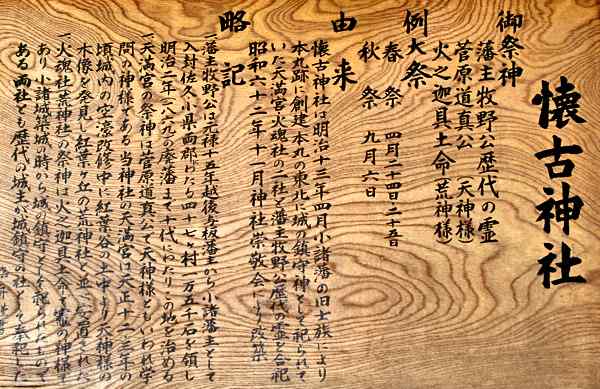 懐古神社
御祭神
藩主牧野公歴代の霊
菅原道真公（天神様）
火之迦具土命（荒神様）
例大祭
春祭 四月二十四日二十五日
秋祭 九月六日
由来
懐古神社は明治十三年四月小諸藩の旧士族により
本丸跡に創建本丸の東北に城の鎮守神として祀られて
いた天満宮火魂社の二社と藩主牧野公歴代の霊を合祀
昭和六十三年十一月神社崇敬会により改築
略記
一、藩主牧野公は元禄十五年越後与板藩主から小諸藩主として
入封佐久小県両郡のうち四十七ヶ村一万五千石を領し
明治二年一八六九の廃藩まで十代にわたりこの地を治める
一、天満宮の祭神は菅原道真公で天神様ともいわれ学
問の神様である当神社の天満宮は天正十二三年の
頃城内の空濠改修中に紅葉谷の土中より天神様の
木像を発見し紅葉ヶ丘の荒神社と並べ安置された
一、火魂社荒神社の祭神は火之迦具土命で竈の神様で
あり小諸城築城の時から城の鎮守として祀られたもので
ある両社とも歴代の城主が城鎮守の社として奉祀した